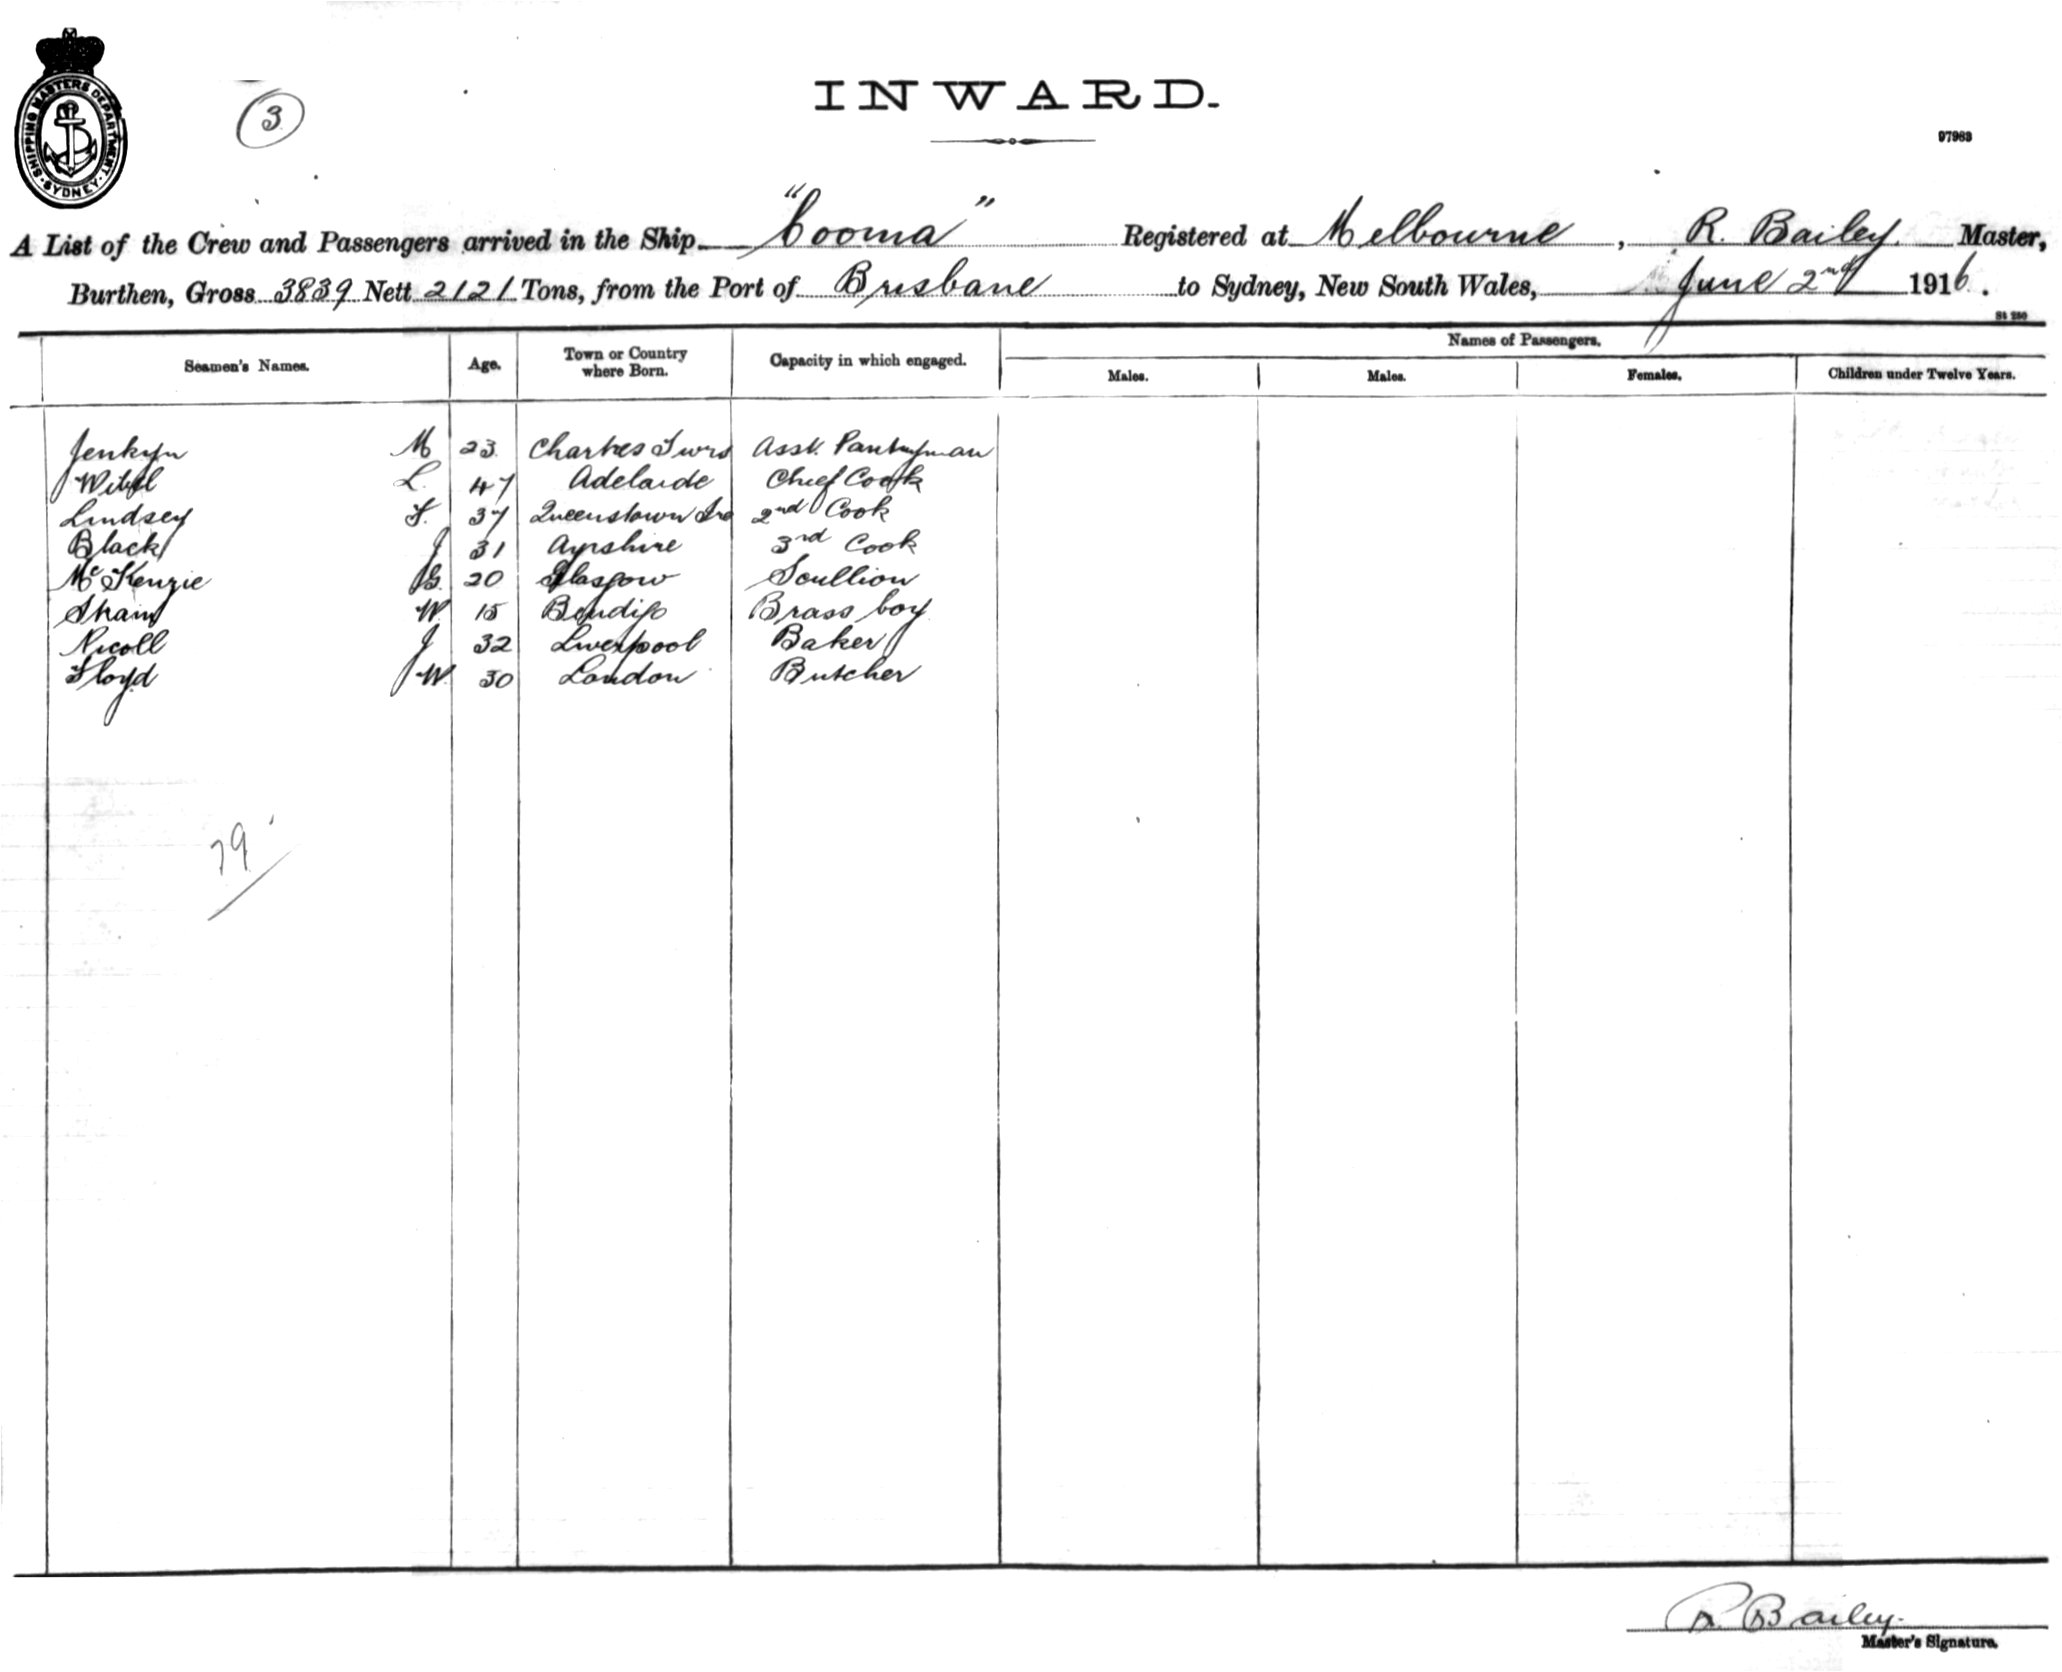 SHIPPING MASTERS DEPARTMENT. SYDNEY.
3
INWARD.
97983
A List of the Crew and Passengers arrived in the Ship "Cooma" Registered at Melbourne, R. Bailey. Master,
Burthen, Gross 3839 Nett 2121 Tons, from the Port of Brisbane to Sydney, New South Wales, June 2nd 1916.
St 280
Seamen's Names. Age. Town or Country where Born. Capacity in which engaged. Names of Passengers.
Males. Males. Females. Children under Twelve Years.
Jenkyn M 23 Charters Twrs Asst. Pantryman
L. 47 Adelaide Chief Cook
Lindsey F. 37 Queenstown Ire 2nd Cook
Black J 31 Ayrshire 3rd Cook
McKenzie G. 20 Glasgow Scullion
W. 15 Bendigo Brass boy
Nicoll J 32 Liverpool Baker
Floyd W. 30 London Butcher
79
R. Bailey.
Master's Signature.